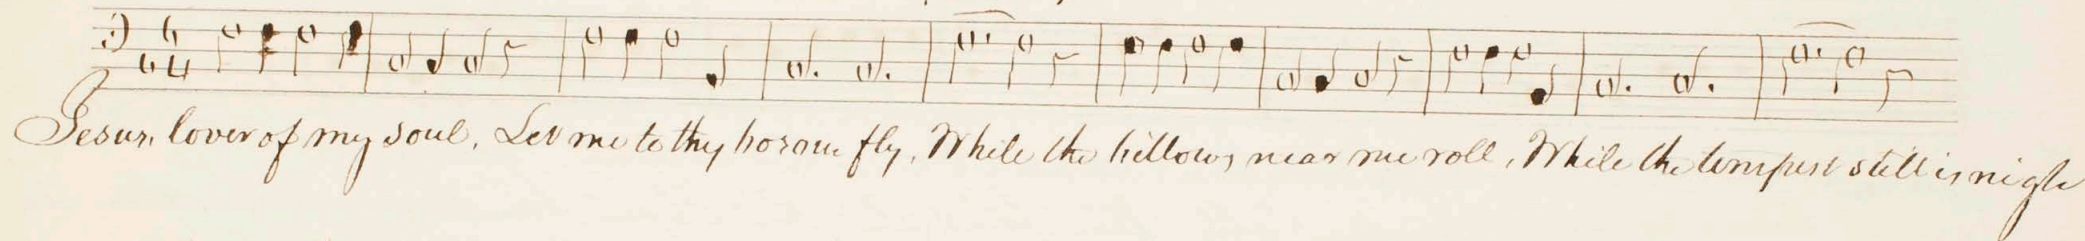 Jesus, lover of my soul, Let me to thy bosom fly, While the billows near me roll, While the tempest still is nigh